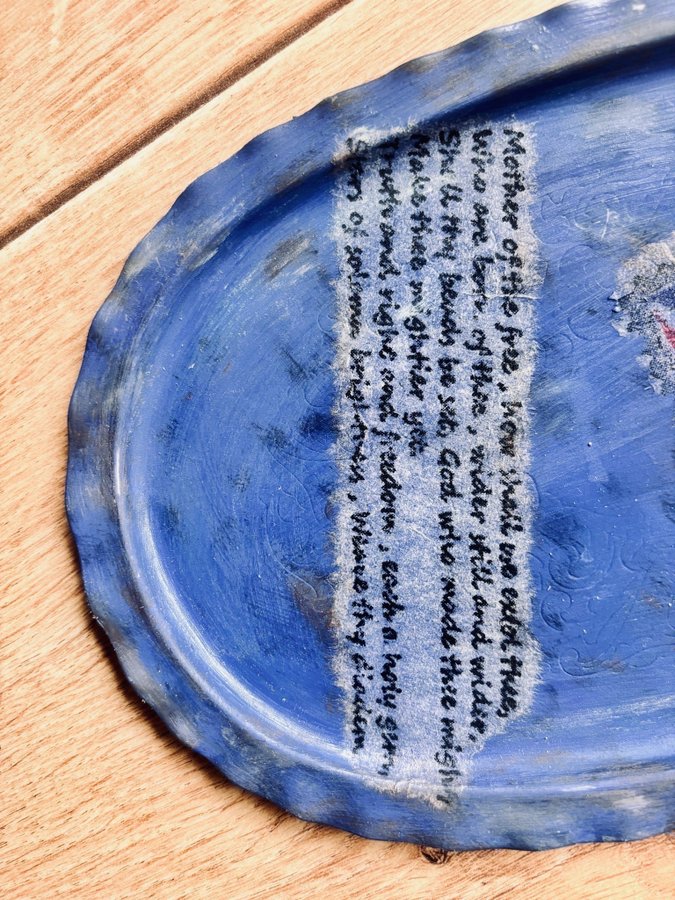 Mother of the free, how shall we extol thee,
Who are born of thee, wider still and wider,
Shall thy be set, God who made thee mighty,
Make thee mightier yet.
Truth and right and freedom, each a holy gem,
Stars of solemn brightness, Weave thy diadem